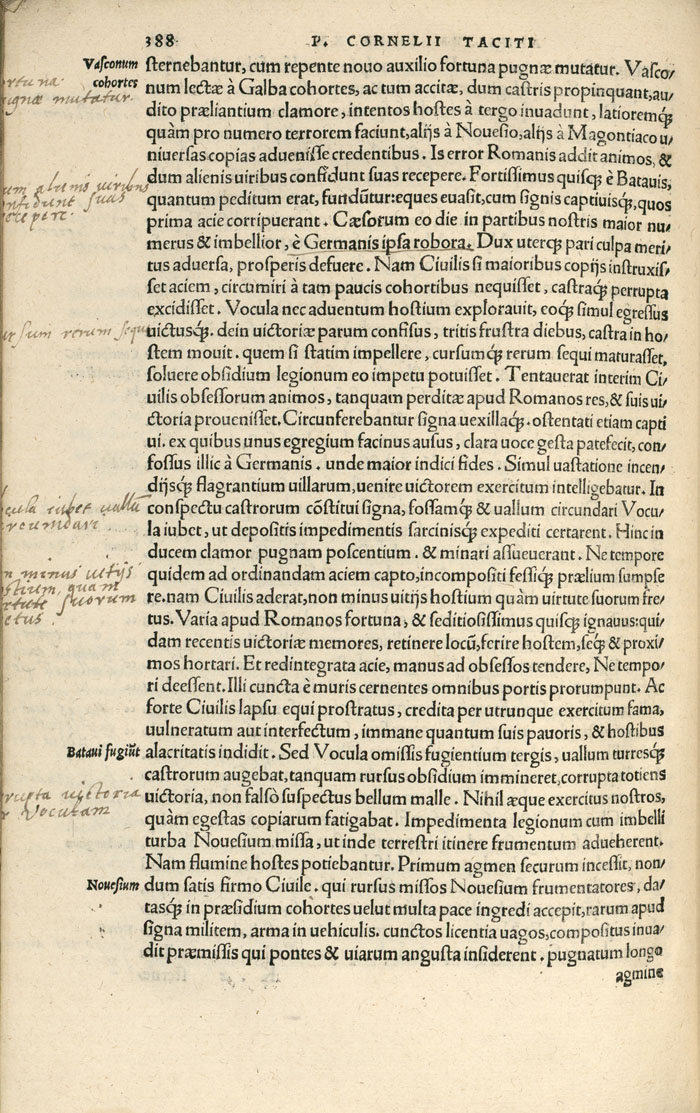 388 P. CORNELII TACITI
Vasconum
cohortes
sternebantur, cum repente nouo auxilio fortuna pugnæ mutatur. Vasco/
num lectæ à Galba cohortes, ac tum accitæ, dum castris propinquant, au/
dito præliantium clamore, intentos hostes à tergo inuadunt, latioremq́;
quàm pro numero terrorem faciunt, alijs à Nouesio, alijs à Magontiaco u/
niuersas copias aduenisse credentibus. Is error Romanis addit animos, &
dum alienis uiribus confidunt suas recepere. Fortissimus quisq; è Batauis,
quantum peditum erat, fundũtur: eques euasit, cum signis captiuisq́;, quos
prima acie corripuerant. Cæsorum eo die in partibus nostris maior nu/
merus & imbellior, è Germanis ipsa robora. Dux uterq; pari culpa meri/
tus aduersa, prosperis defuere. Nam Ciuilis si maioribus copijs instruxis/
set aciem, circumiri à tam paucis cohortibus nequisset, castraq́; perrupta
excidisset. Vocula nec aduentum hostium explorauit, eoq́; simul egressus
uictusq́;. dein uictoriæ parum confisus, tritis frustra diebus, castra in ho/
stem mouit. quem si statim impellere, cursumq́; rerum sequi maturasset,
soluere obsidium legionum eo impetu potuisset. Tentauerat interim Ci/
uilis obsessorum animos, tanquam perditæ apud Romanos res, & suis ui/
ctoria prouenisset. Circunferebantur signa uexillaq́;. ostentati etiam capti
ui. ex quibus unus egregium facinus ausus, clara uoce gesta patefecit, con/
fossus illic à Germanis. unde maior indici fides. Simul uastatione incen/
dijsq́; flagrantium uillarum, uenire uictorem exercitum intelligebatur. In
conspectu castrorum cõstitui signa, fossamq́; & uallum circundari Vocu/
la iubet, ut depositis impedimentis sarcinisq́; expediti certarent. Hinc in
ducem clamor pugnam poscentium. & minari assueuerant. Ne tempore
quidem ad ordinandam aciem capto, incompositi fessiq́; prælium sumpse
re. nam Ciuilis aderat, non minus uitijs hostium quàm uirtute suorum fre/
tus. Varia apud Romanos fortuna, & seditiosissimus quisq; ignauus: qui/
dam recentis uictoriæ memores, retinere locũ, ferire hostem, seq́; & proxi/
mos hortari. Et redintegrata acie, manus ad obsessos tendere, Ne tempo/
ri deessent. Illi cuncta è muris cernentes omnibus portis prorumpunt. Ac
forte Ciuilis lapsu equi prostratus, credita per utrunque exercitum fama,
uulneratum aut interfectum, immane quantum suis pauoris, & hostibus
Bataui fugiũt
alacritatis indidit. Sed Vocula omissis fugientium tergis, uallum turresq́;
castrorum augebat, tanquam rursus obsidium immineret, corrupta totiens
uictoria, non falsò suspectus bellum malle. Nihil æque exercitus nostros,
quàm egestas copiarum fatigabat. Impedimenta legionum cum imbelli
turba Nouesium missa, ut inde terrestri itinere frumentum adueherent.
Nam flumine hostes potiebantur. Primum agmen securum incessit, non/
Nouesium
dum satis firmo Ciuile. qui rursus missos Nouesium frumentatores, da/
tasq́; in præsidium cohortes uelut multa pace ingredi accepit, rarum apud
signa militem, arma in uehiculis. cunctos licentia uagos, compositus inua/
dit præmissis qui pontes & uiarum angusta insiderent. pugnatum longo
agmine
rtuna
ugnæ mutatur.
um alienis uiribus
nfidunt suas
recepere.
ursum rerum sequi
cula iubet uallũ
ircumdari.
n minus uitijs
ostium, quam
irtute suorum
retus.
rrupta uictoria
Voculam